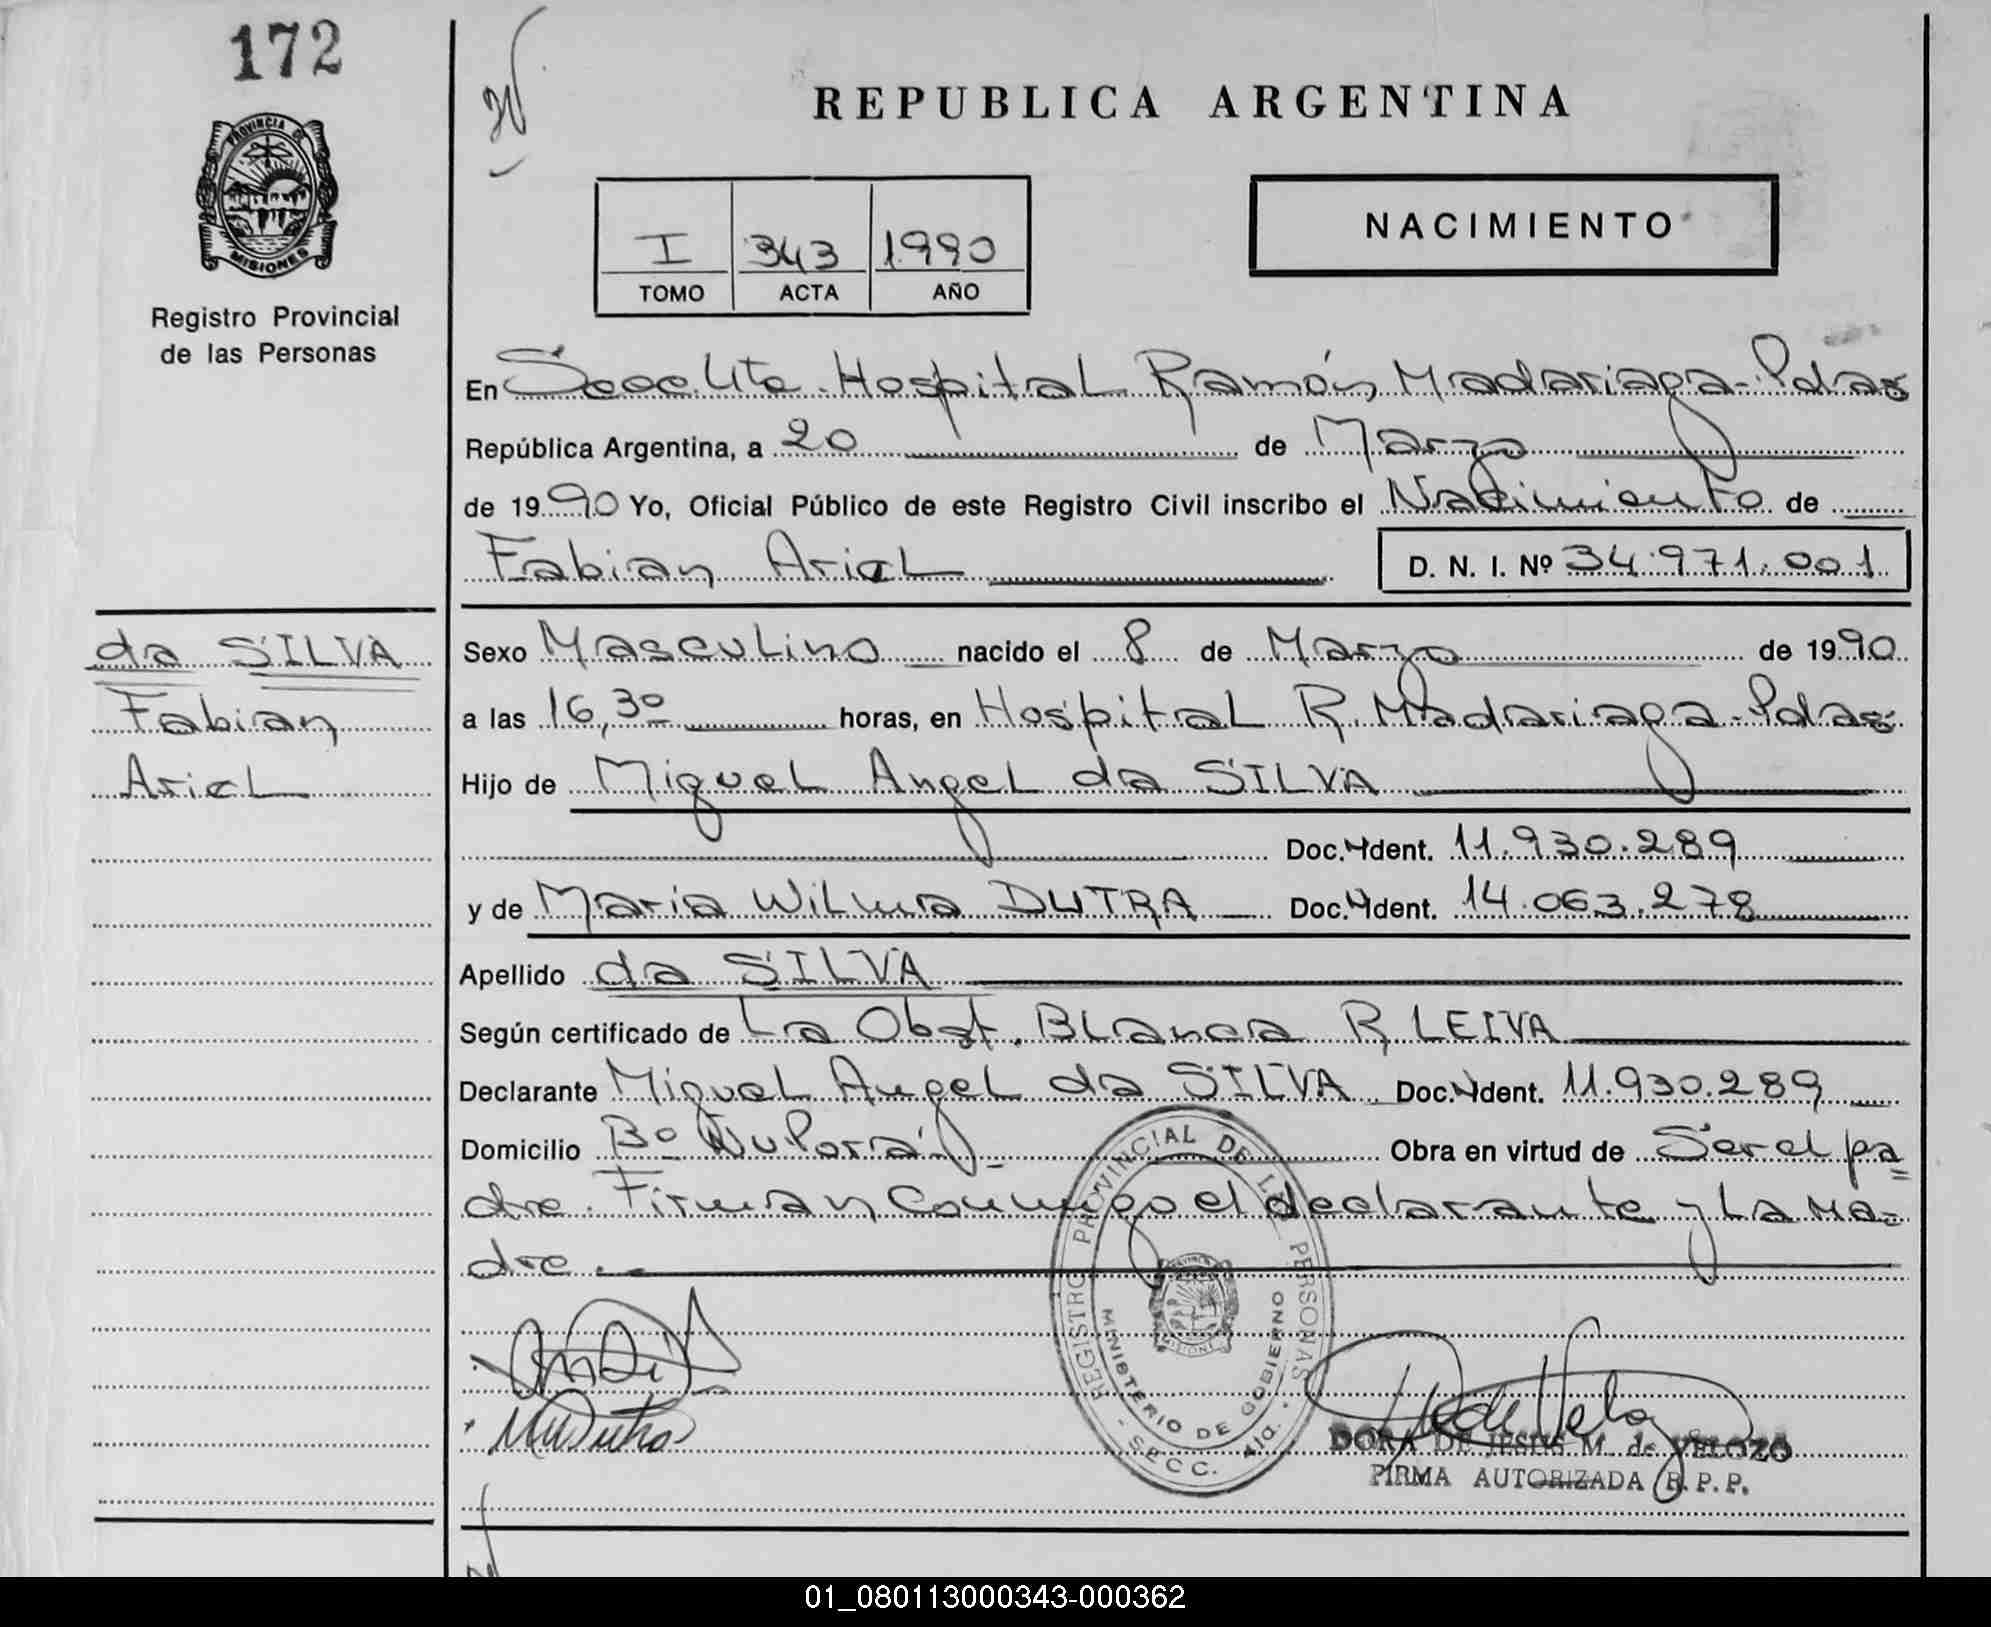 172
REPUBLICA ARGENTINA
PROVINCIA DE
MISIONES
Registro Provincial
de las Personas
I 343 1990
TOMO ACTA AÑO
NACIMIENTO
En Secc. 4ta. Hospital Ramón Madariaga - Pdas
República Argentina, a 20 de Marzo
de 1990 Yo, Oficial Público de este Registro Civil inscribo el Nacimiento de
Fabian Ariel D. N. I. Nº 34.971.001
da SILVA
Fabian
Ariel
Sexo Masculino nacido el 8 de Marzo de 1990
a las 16,30 horas, en Hospital R. Madariaga - Pdas
Hijo de Miguel Angel da SILVA
Doc. Ident. 11.930.289
y de Maria Wilma DUTRA Doc. Ident. 14.063.278
Apellido da SILVA
Según certificado de La Obst. Blanca R. LEIVA
Declarante Miguel Angel da SILVA Doc. Ident. 11.930.289
Domicilio Bº Ñu Porá Obra en virtud de Ser el pa=
dre. Firman conmigo el declarante y la ma=
dre.
REGISTRO PROVINCIAL DE LAS PERSONAS
MINISTERIO DE GOBIERNO
MISIONES
SECC. 4ta.
DORA DE JESUS M. de VELOZO
FIRMA AUTORIZADA R.P.P.
01_080113000343-000362